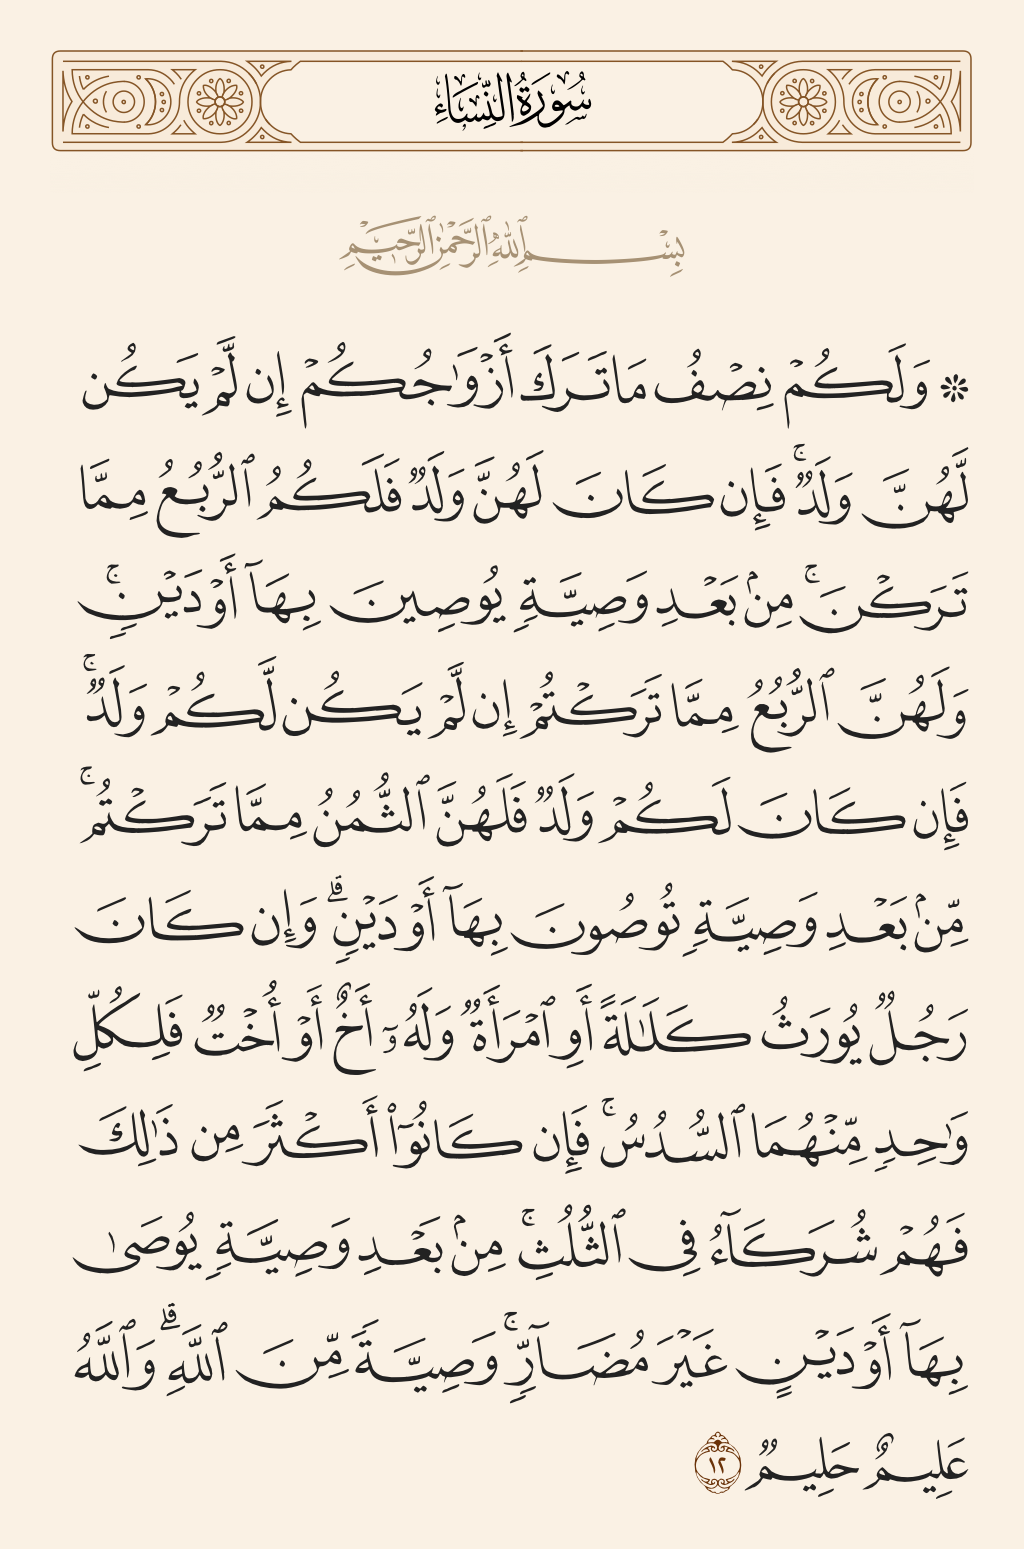 سُورَةُ النِّسَاءِ
بِسْمِ ٱللَّهِ ٱلرَّحْمَٰنِ ٱلرَّحِيمِ
۞ وَلَكُمْ نِصْفُ مَا تَرَكَ أَزْوَٰجُكُمْ إِن لَّمْ يَكُن
لَّهُنَّ وَلَدٌۭ ۚ فَإِن كَانَ لَهُنَّ وَلَدٌۭ فَلَكُمُ ٱلرُّبُعُ مِمَّا
تَرَكْنَ ۚ مِنۢ بَعْدِ وَصِيَّةٍۢ يُوصِينَ بِهَآ أَوْ دَيْنٍۢ ۚ
وَلَهُنَّ ٱلرُّبُعُ مِمَّا تَرَكْتُمْ إِن لَّمْ يَكُن لَّكُمْ وَلَدٌۭ ۚ
فَإِن كَانَ لَكُمْ وَلَدٌۭ فَلَهُنَّ ٱلثُّمُنُ مِمَّا تَرَكْتُم ۚ
مِّنۢ بَعْدِ وَصِيَّةٍۢ تُوصُونَ بِهَآ أَوْ دَيْنٍۢ ۗ وَإِن كَانَ
رَجُلٌۭ يُورَثُ كَلَـٰلَةً أَوِ ٱمْرَأَةٌۭ وَلَهُۥٓ أَخٌ أَوْ أُخْتٌۭ فَلِكُلِّ
وَٰحِدٍۢ مِّنْهُمَا ٱلسُّدُسُ ۚ فَإِن كَانُوٓا۟ أَكْثَرَ مِن ذَٰلِكَ
فَهُمْ شُرَكَآءُ فِى ٱلثُّلُثِ ۚ مِنۢ بَعْدِ وَصِيَّةٍۢ يُوصَىٰ
بِهَآ أَوْ دَيْنٍ غَيْرَ مُضَآرٍّۢ ۚ وَصِيَّةًۭ مِّنَ ٱللَّهِ ۗ وَٱللَّهُ
عَلِيمٌ حَلِيمٌۭ ١٢